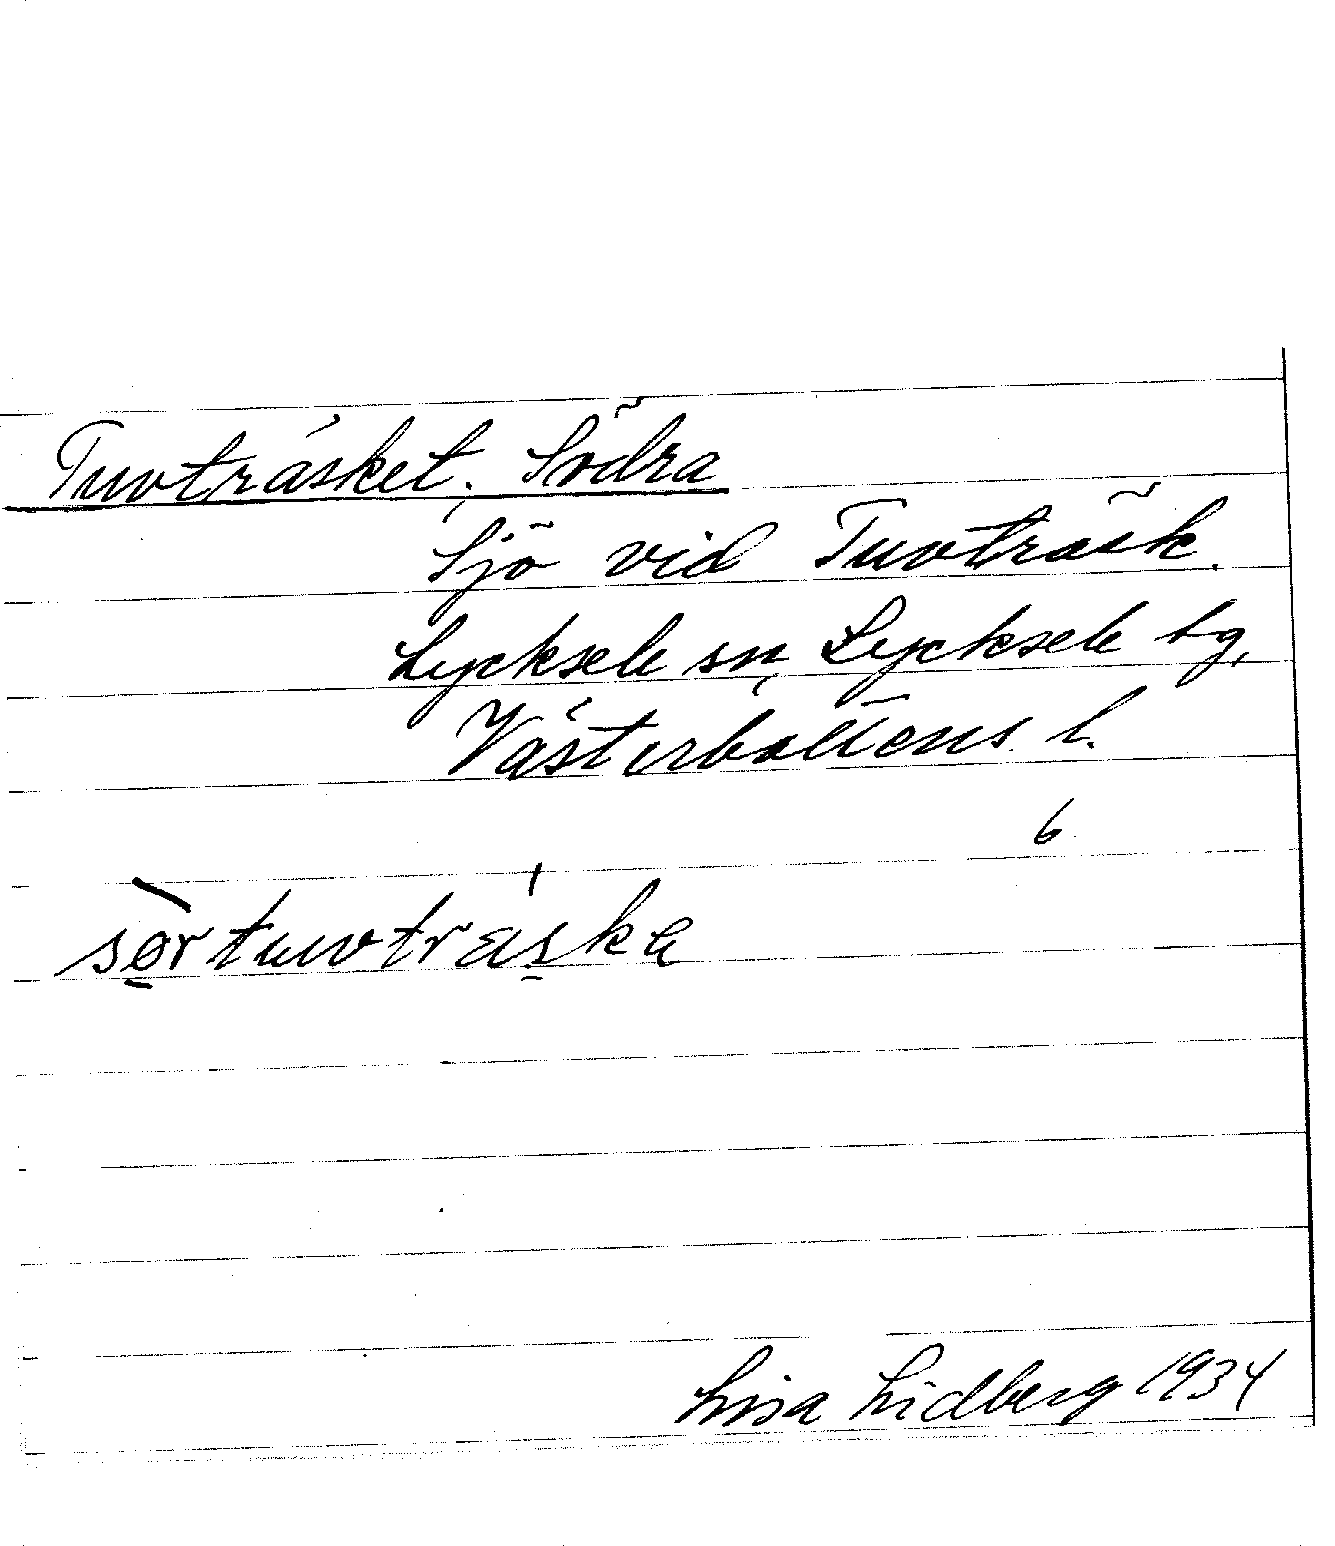 Tuvträsket, Södra
Sjö vid Tuvträsk.
Lycksele sn, Lycksele tg,
Västerbottens l.
6
sørtuvtraska
Lisa Lidberg 1934